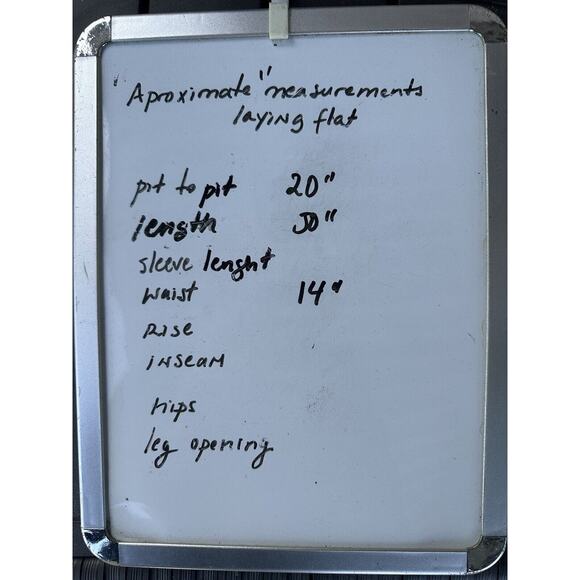 "Aproximate" measurements
laying flat
pit to pit 20"
length 50"
sleeve lenght
waist 14"
Rise
inseam
hips
leg opening